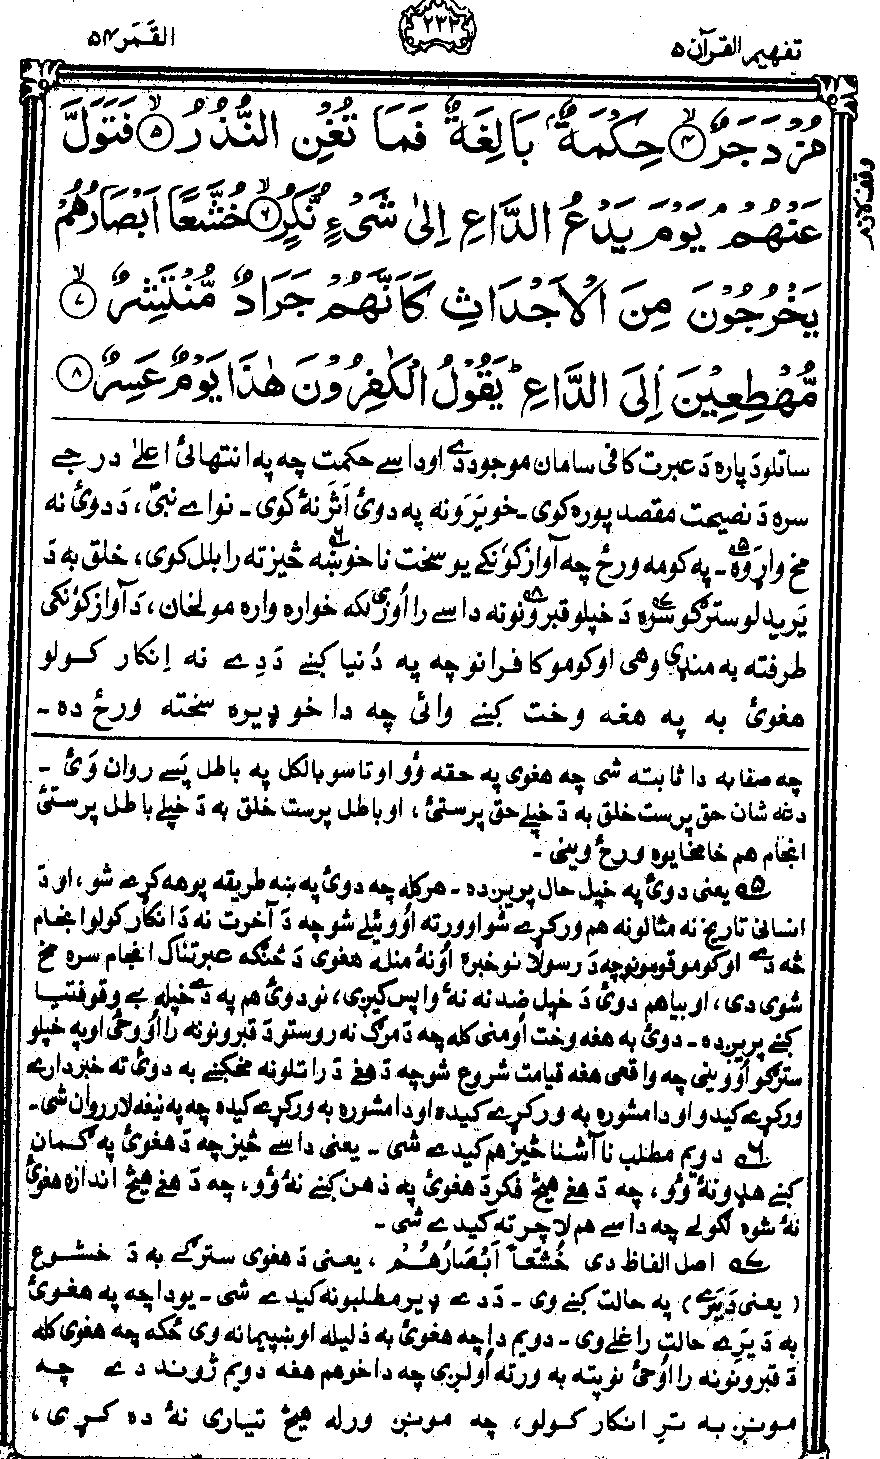 تفهیم القرآن ۵
۲۳۲
القَمَر ۵۴
مُزْدَجَرٌ ۙ﴿۴﴾ حِكْمَةٌۢ بَالِغَةٌ فَمَا تُغْنِ النُّذُرُ ۙ﴿۵﴾ فَتَوَلَّ
وقف لازم
عَنْهُمْ ۘ يَوْمَ يَدْعُ الدَّاعِ اِلٰى شَىْءٍ نُّكُرٍ ۙ﴿۶﴾ خُشَّعًا اَبْصَارُهُمْ
يَخْرُجُوْنَ مِنَ الْاَجْدَاثِ كَاَنَّهُمْ جَرَادٌ مُّنْتَشِرٌ ۙ﴿۷﴾
مُّهْطِعِيْنَ اِلَى الدَّاعِ ؕ يَقُوْلُ الْكٰفِرُوْنَ هٰذَا يَوْمٌ عَسِرٌ ﴿۸﴾
ساتلو دَپاره دَ عبرت کافی سامان موجود دے اوداسے حکمت چه په انتهائی اعلیٰ درجے
سره دَ نصیحت مقصد پوره کوی ـ خو یَرَونه په دوئ اَثَر نهٔ کوی ـ نو اے نبیؐ، دَ دوئ نه
مخ واړوهٔ ـ په کومه ورځ چه آواز کوُنکے یو سخت ناخوښه څیز ته را بلل کوی، خلق به دَ
یَرېدلو سترګو سره دَ خپلو قبرونونه داسے را اُوزی لکه خواره واره مولخان، دَ آواز کوُنکی
طرفته به منډې وهی او کومو کافرانو چه په دُنیا کښے دَدے نه اِنکار کولو
هغوئ به په هغه وخت کښے وائی چه دا خو ډیره سخته ورځ ده ـ
چه صفا به دا ثابته شی چه هغوی په حقه وُو او تاسو بالکل په باطل پسے روان وَئ ـ
دغه شان حق پرست خلق به دَ خپلے حق پرستئ، او باطل پرست خلق به دَ خپلے باطل پرستئ
انجام هم خامخا یوه ورځ وینی ـ
۵ یعنی دوئ په خپل حال پریږده ـ هرکله چه دوئ په ښه طریقه پوهه کړے شو، او دَ
انسانی تاریخ نه مثالونه هم ورکړے شو او ورته اُووئیلے شو چه دَ آخرت نه دَ انکار کولو انجام
څه دے او کومو قومونو چه دَ رسولانو خبره اُونهٔ منله هغوی دَ څنګه عبرتناک انجام سره مخ
شوی دی، او بیا هم دوئ دَ خپل ضد نه نهٔ واپس کیږی، نو دوئ هم په دے خپله بے وقوفتیا
کښے پریږده ـ دوئ به هغه وخت اُومنی کله چه دَ مرګ نه روستو دَ قبرونونه را اُوځی او په خپلو
سترګو اُووینی چه واقعی هغه قیامت شروع شو چه دَ هغے دَ راتلو نه مخکښے به دوئ ته خبردارے
ورکړے کیدو او دا مشوره به ورکړے کیده او دا مشوره به ورکړے کیده چه په نیغه لار روان شی ـ
۶ دویم مطلب نا آشنا څیز هم کیدے شی ـ یعنی داسے څیز چه دَ هغوئ په ګمان
کښے هډو نهٔ وُو، چه دَ هغے هیڅ فکر دَ هغوئ په ذهن کښے نهٔ وُو، چه دَ هغے هیڅ اندازه هغوئ
نهٔ شوه لګولے چه داسے هم لاچرته کیدے شی ـ
۷ اصل الفاظ دی خُشَّعاً اَبْصَارُهُمْ ، یعنی دَ هغوی سترګے به دَ خشوع
(یعنی دَ یَرے) په حالت کښے وی ـ دَدے ډیر مطلبونه کیدے شی ـ یو دا چه په هغوئ
به دَ یَرے حالت راغلے وی ـ دویم دا چه هغوئ به ذلیله او ښپیمانه وی ځکه چه هغوی کله
دَ قبرونونه را اُوځی نو پته به ورته اُولږی چه دا خو هم هغه دویم ژوند دے چه
مونږ به تر انکار کولو، چه مونږ ورله هیڅ تیاری نهٔ ده کړی،